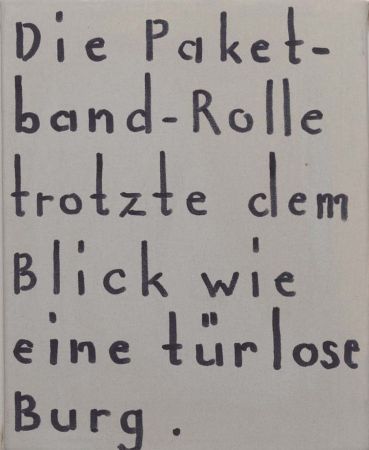 Die Paket-
band-Rolle
trotzte dem
Blick wie
eine türlose
Burg.